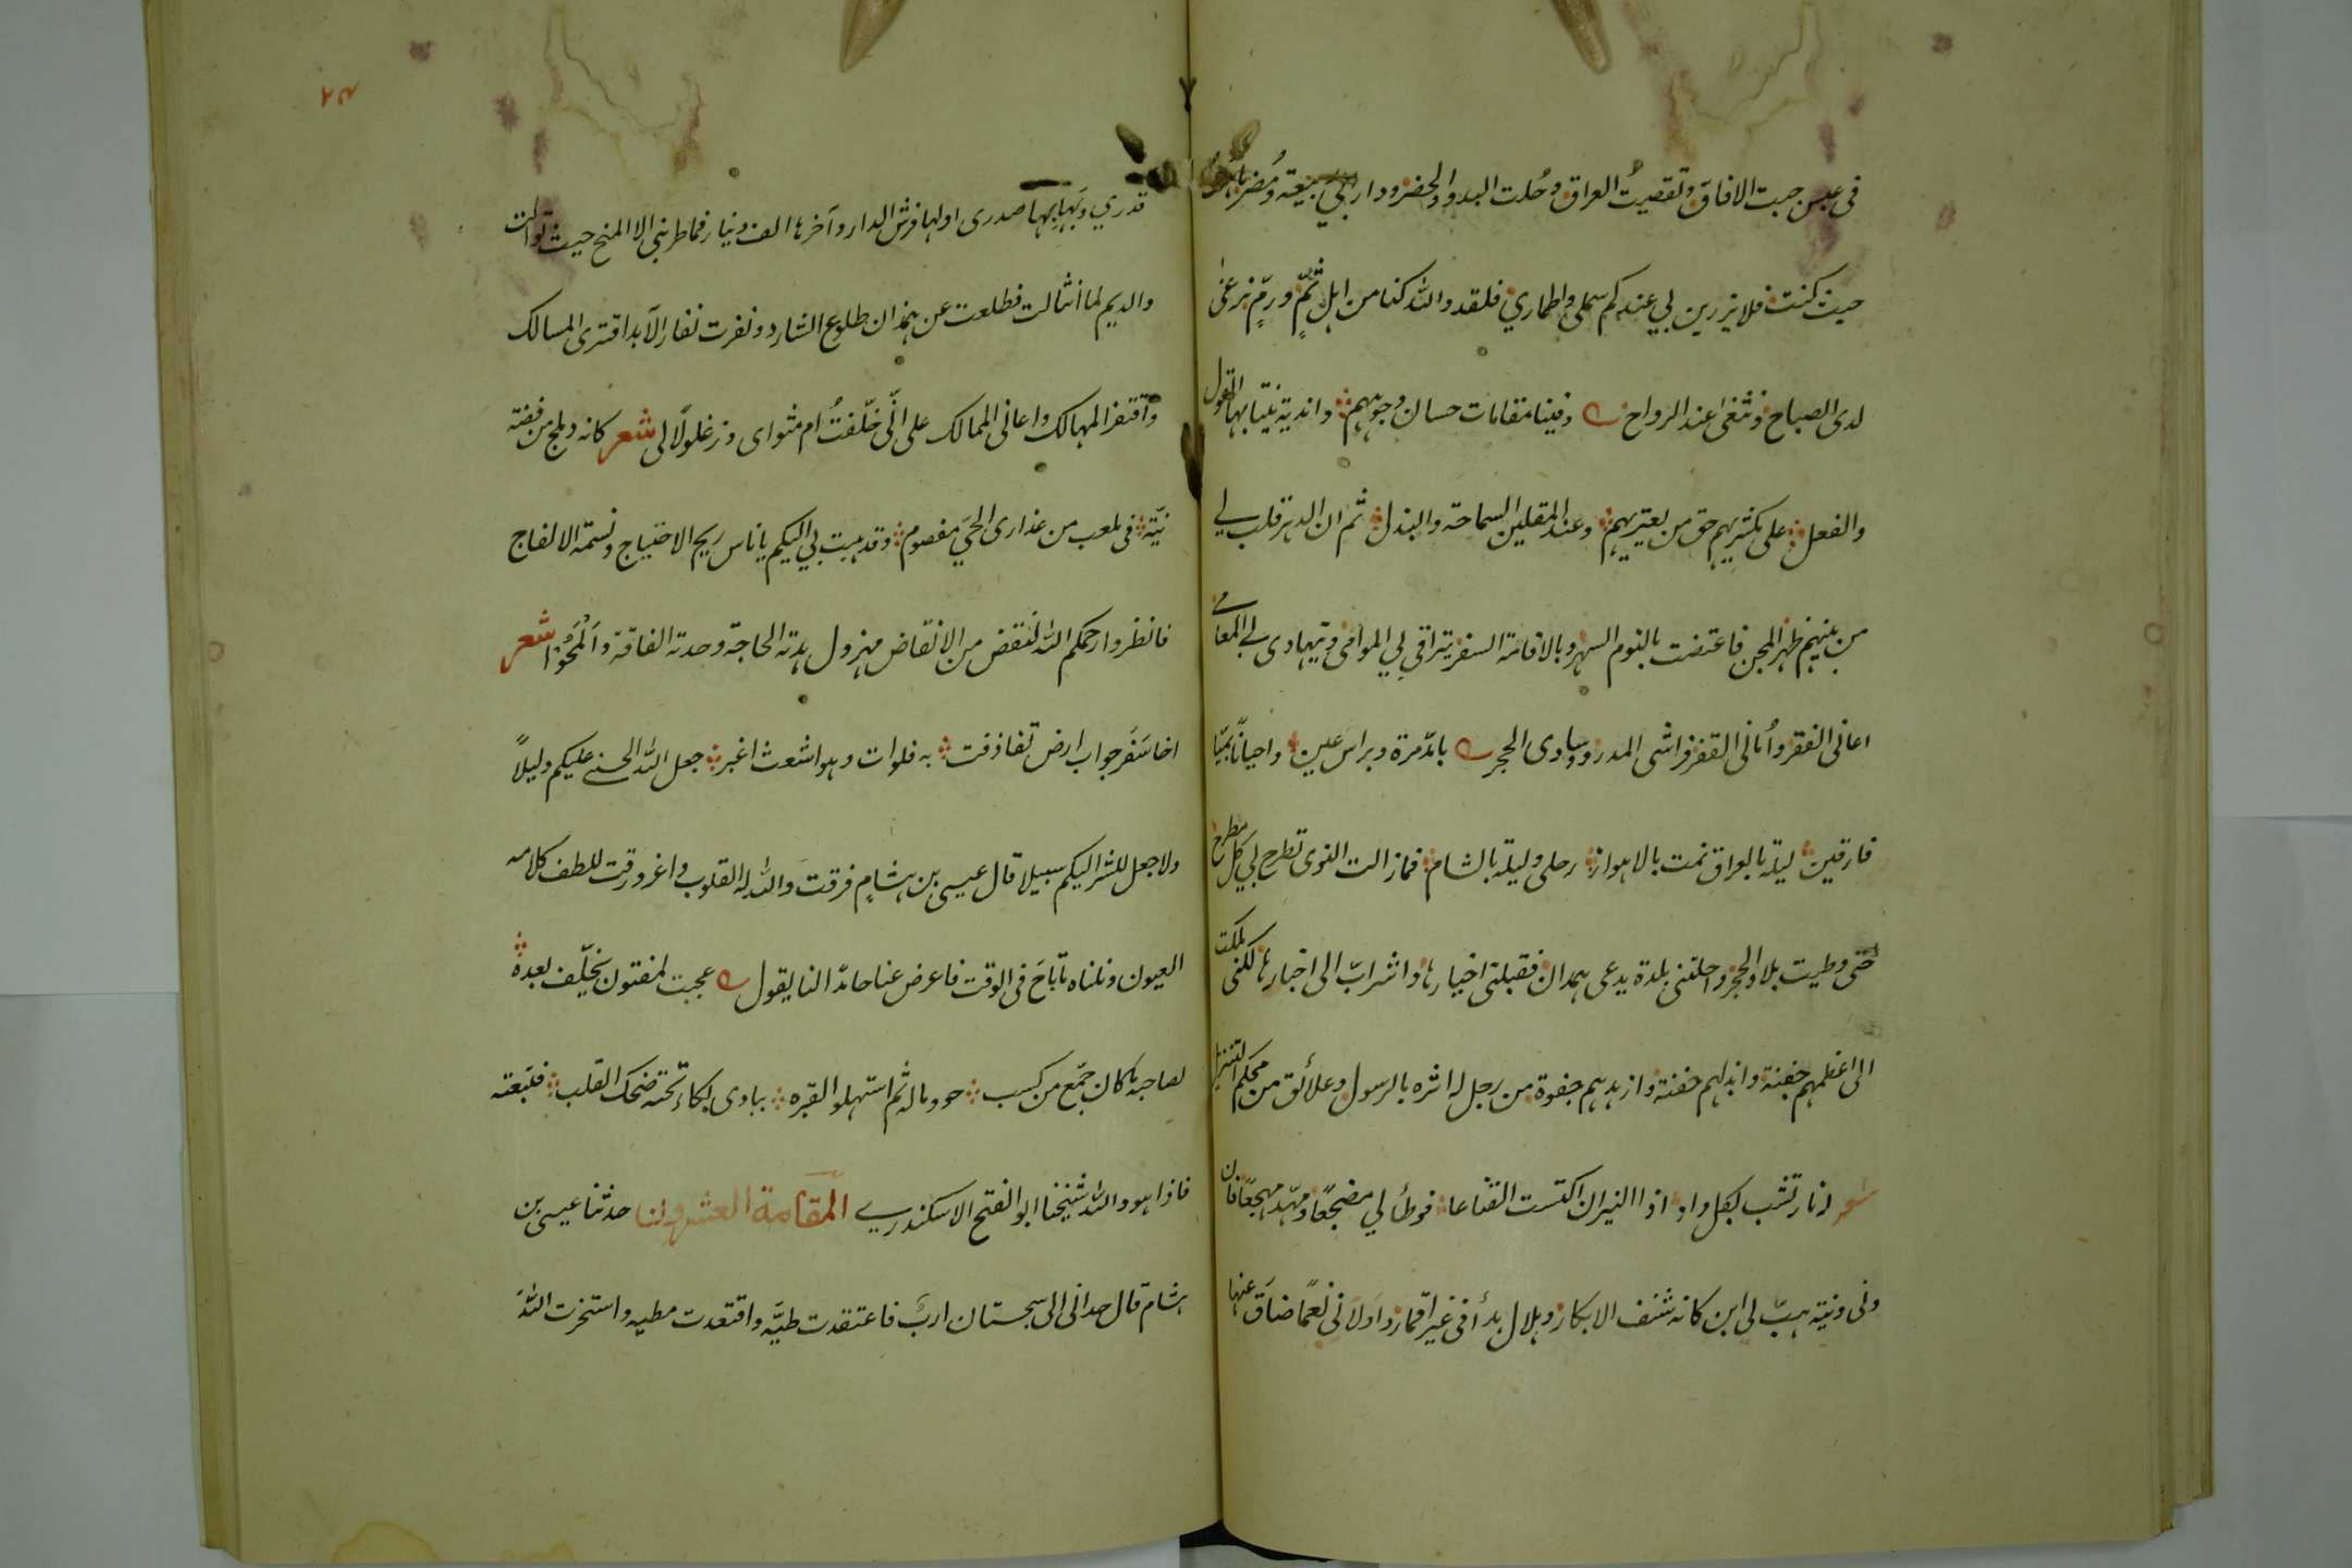 فى عبس جبت الافاق وتقصيتُ العراق وحُلت البدو والحضر ودارى ربيعة ومُضر
حيث كنت فلا يزرين لي عندكم سملي واطماري فلقد والله كنا من اهل ثَمٍّ ورمٍّ نرغى
لدى الصباح ونثغى عند الرواح وفينا مقامات حسان وجوههم واندية ينتابها القول
والفعل على مكثريهم حق من يعتريهم وعند المقلين السماحة والبذل ثم ان الدهر قلب لي
من بينهم ظهر المجن فاعتضت بالنوم السهر وبالاقامة السفر يتراقى لي المرامى ويتهادى لي المعامي
اعانى الفقر وأنانى القفر فراشى المدر ووسادى الحجر بآمد مرة وبراس عين واحيانًا بميّا
فارقين ليلة بالعراق نمت بالاهواز رحلى وليلة بالشام فما زالت النوى تطرح لي كل مطرح
حتى وطيت بلاد الحجر واحلتنى بلدة يدعى همدان فقبلتى اخيارها واشرابّ الى اخبارها لكنى ملكت
الى اعظمهم جفنة وابذلهم جفنة وازهدهم جفوة من رجل له اثره بالرسول وعلائق من محكم التنزيل
شعر له نار تشب بكل واد اذا النيران اكتست القناعا فوطأ لي مضجعًا ومهّد مهجعًا فان
ونى ونية هبّ لى ابن كانه شنف الابكار وهلال بدأ فى غير اقمار واولانى نعمًا ضاق عنها
٢٨
قدري وبها بها صدرى اولها فرش الدار وآخرها الف دينار فما طرنى الا المنح حيث توالت
والديم لما انثالت فطلعت عن همذان طلوع الشارد ونفرت نفار الآبد اقترى المسالك
واقتفر المهالك واعانى الممالك على انّى خلّفتُ ام مثواى وزغلولًا لى شعر كانه دملج من فضة
نبّة فى ملعب من عذارى الحيّ مفصوم وقد هبت بي اليكم يا ناس ريح الاحتياج ونسمة الالفاج
فانظروا رحمكم الله لنقض من الانقاض مهزول هدته الحاجة وحدته الفاقة والمَحوا شعر
اخا سَفَر جواب ارض تقاذفت به فلوات وهو اشعث اغبر جعل الله الحسنى عليكم دليلًا
ولا جعل للشر اليكم سبيلا قال عيسى بن هشامٍ فرقت والله له القلوب واغرورقت للطف كلامه
العيون ونلناه بتاح فى الوقت فاعرض عنا حامدًا لنا يقول عجبت لمفتون يخلّف بعده
لصاحبه ما كان جمّع من كسب حووا ماله ثم استهلوا لقبره ببادى بكاء تحته ضحك القلب فتبعته
فاذا هو والله شيخنا ابو الفتح الاسكندري المقامة العشرون لنا حدثنا عيسى بن
هشام قال حدانى الى سجستان اربٌ فاعتقدت طيّه واقتعدت مطيه واستخرت الله